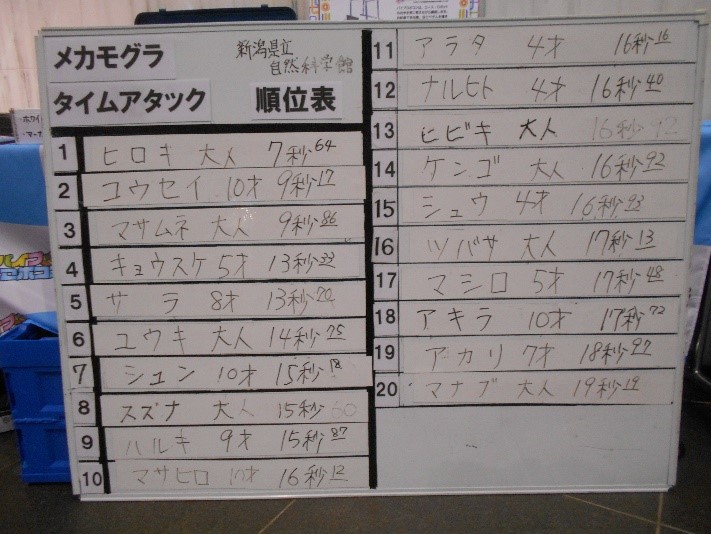 メカモグラ
新潟県立
自然科学館
タイムアタック 順位表
1 ヒロキ 大人 7秒64
2 コウセイ 10才 9秒17
3 マサムネ 大人 9秒86
4 キョウスケ 5才 13秒33
5 サラ 8才 13秒70
6 ユウキ 大人 14秒75
7 シュン 10才 15秒18
8 スズナ 大人 15秒60
9 ハルキ 9才 15秒87
10 マサヒロ 10才 16秒12
11 アラタ 4才 16秒16
12 ナルヒト 4才 16秒40
13 ヒビキ 大人 16秒92
14 ケンゴ 大人 16秒92
15 シュウ 4才 16秒93
16 ツバサ 大人 17秒13
17 マシロ 5才 17秒48
18 アキラ 10才 17秒72
19 アカリ 7才 18秒97
20 マナブ 大人 19秒19